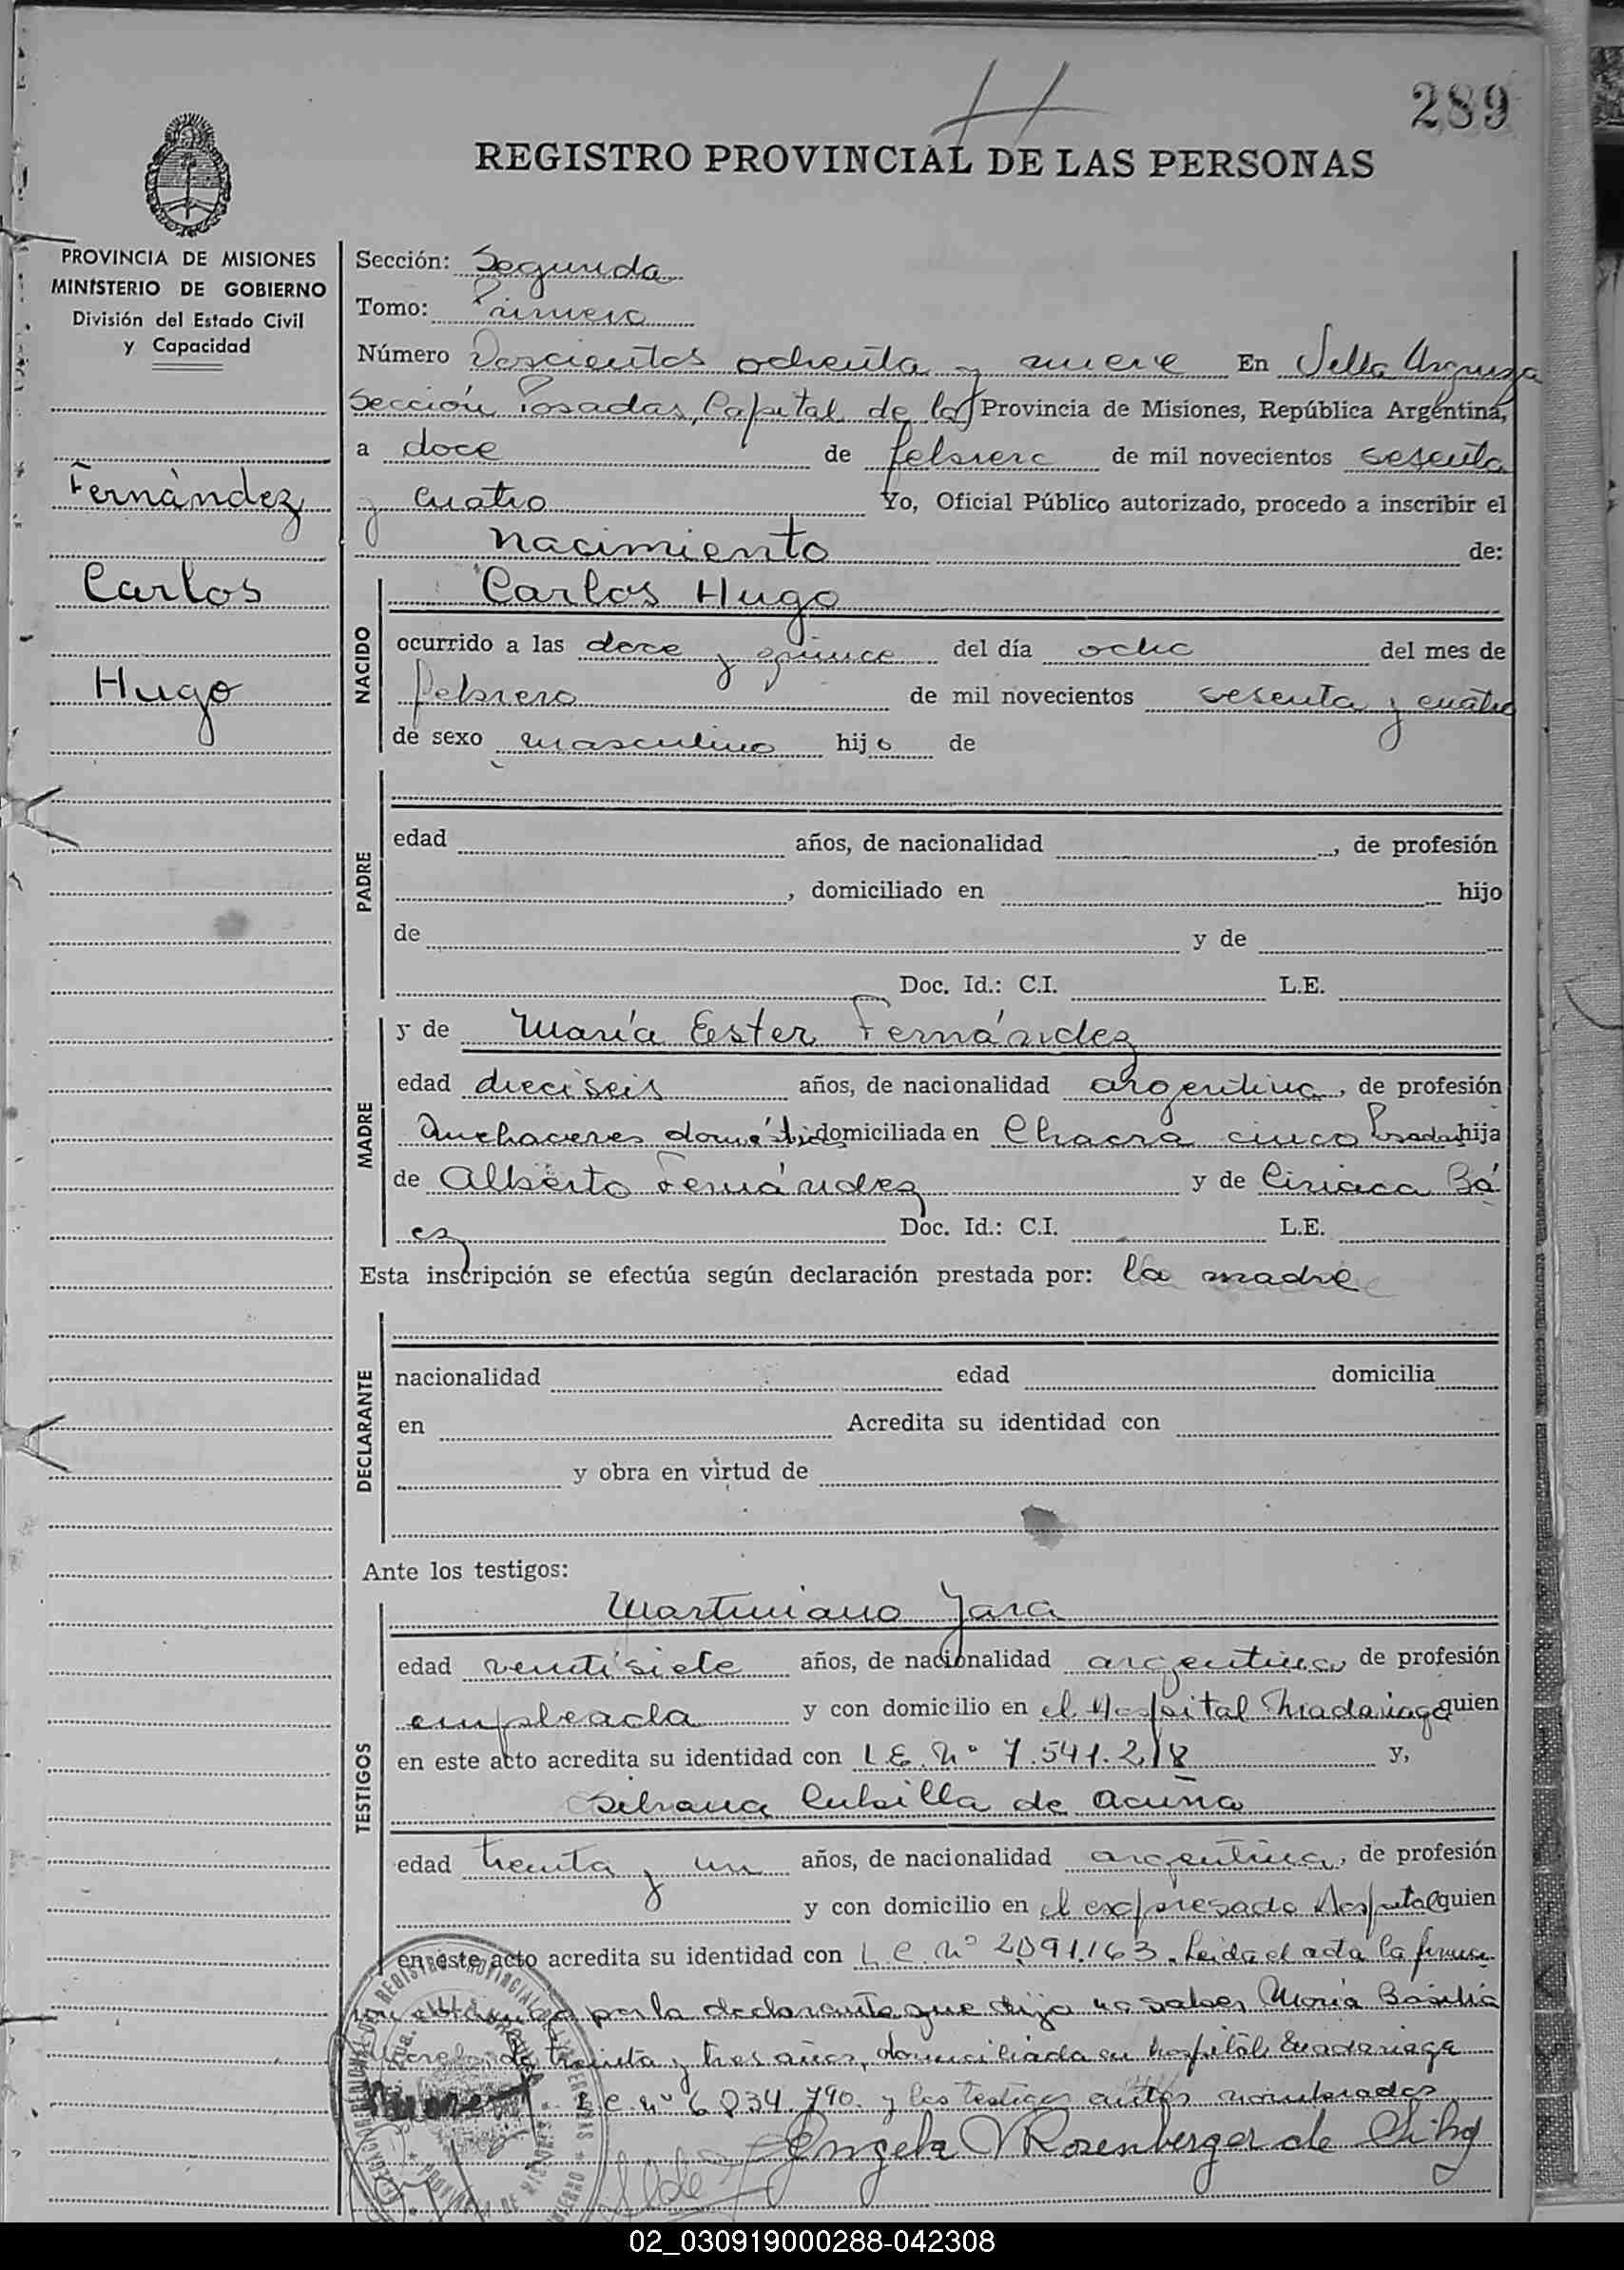 289
REGISTRO PROVINCIAL DE LAS PERSONAS
PROVINCIA DE MISIONES
MINISTERIO DE GOBIERNO
División del Estado Civil
y Capacidad
Fernández
Carlos
Hugo
Sección: Segunda
Tomo: Primero
Número Doscientos ochenta y nueve En Villa Urquiza
Sección Posadas, Capital de la Provincia de Misiones, República Argentina,
a doce de febrero de mil novecientos sesenta
y cuatro Yo, Oficial Público autorizado, procedo a inscribir el
nacimiento de:
NACIDO
Carlos Hugo
ocurrido a las doce y quince del día ocho del mes de
febrero de mil novecientos sesenta y cuatro
de sexo masculino hijo de
PADRE
edad años, de nacionalidad , de profesión
, domiciliado en hijo
de y de
Doc. Id.: C.I. L.E.
MADRE
y de María Ester Fernández
edad dieciseis años, de nacionalidad argentina, de profesión
Quehaceres domésti domiciliada en Chacra cinco Posadas hija
de Alberto Fernández y de Ciriaca Bá
ez Doc. Id.: C.I. L.E.
Esta inscripción se efectúa según declaración prestada por: la madre
DECLARANTE
nacionalidad edad domicilia
en Acredita su identidad con
y obra en virtud de
Ante los testigos:
TESTIGOS
Martiniano Jara
edad ventisiete años, de nacionalidad argentina, de profesión
empleada y con domicilio en el Hospital Madariaga quien
en este acto acredita su identidad con L.E. Nº 7.541.218 y,
de Acuña
edad treinta y un años, de nacionalidad argentina, de profesión
y con domicilio en el expresado Hospital quien
en este acto acredita su identidad con L.C. Nº 2.091.163. Leida el acta la firma
por la declarante que dijo no saber María Basilia
de treinta y tres años, domiciliada en hospital Madariaga
L.C. nº 6.834.790. y los testigos antes nombrados
Angela V Rosenberger de Silva
02_030919000288-042308